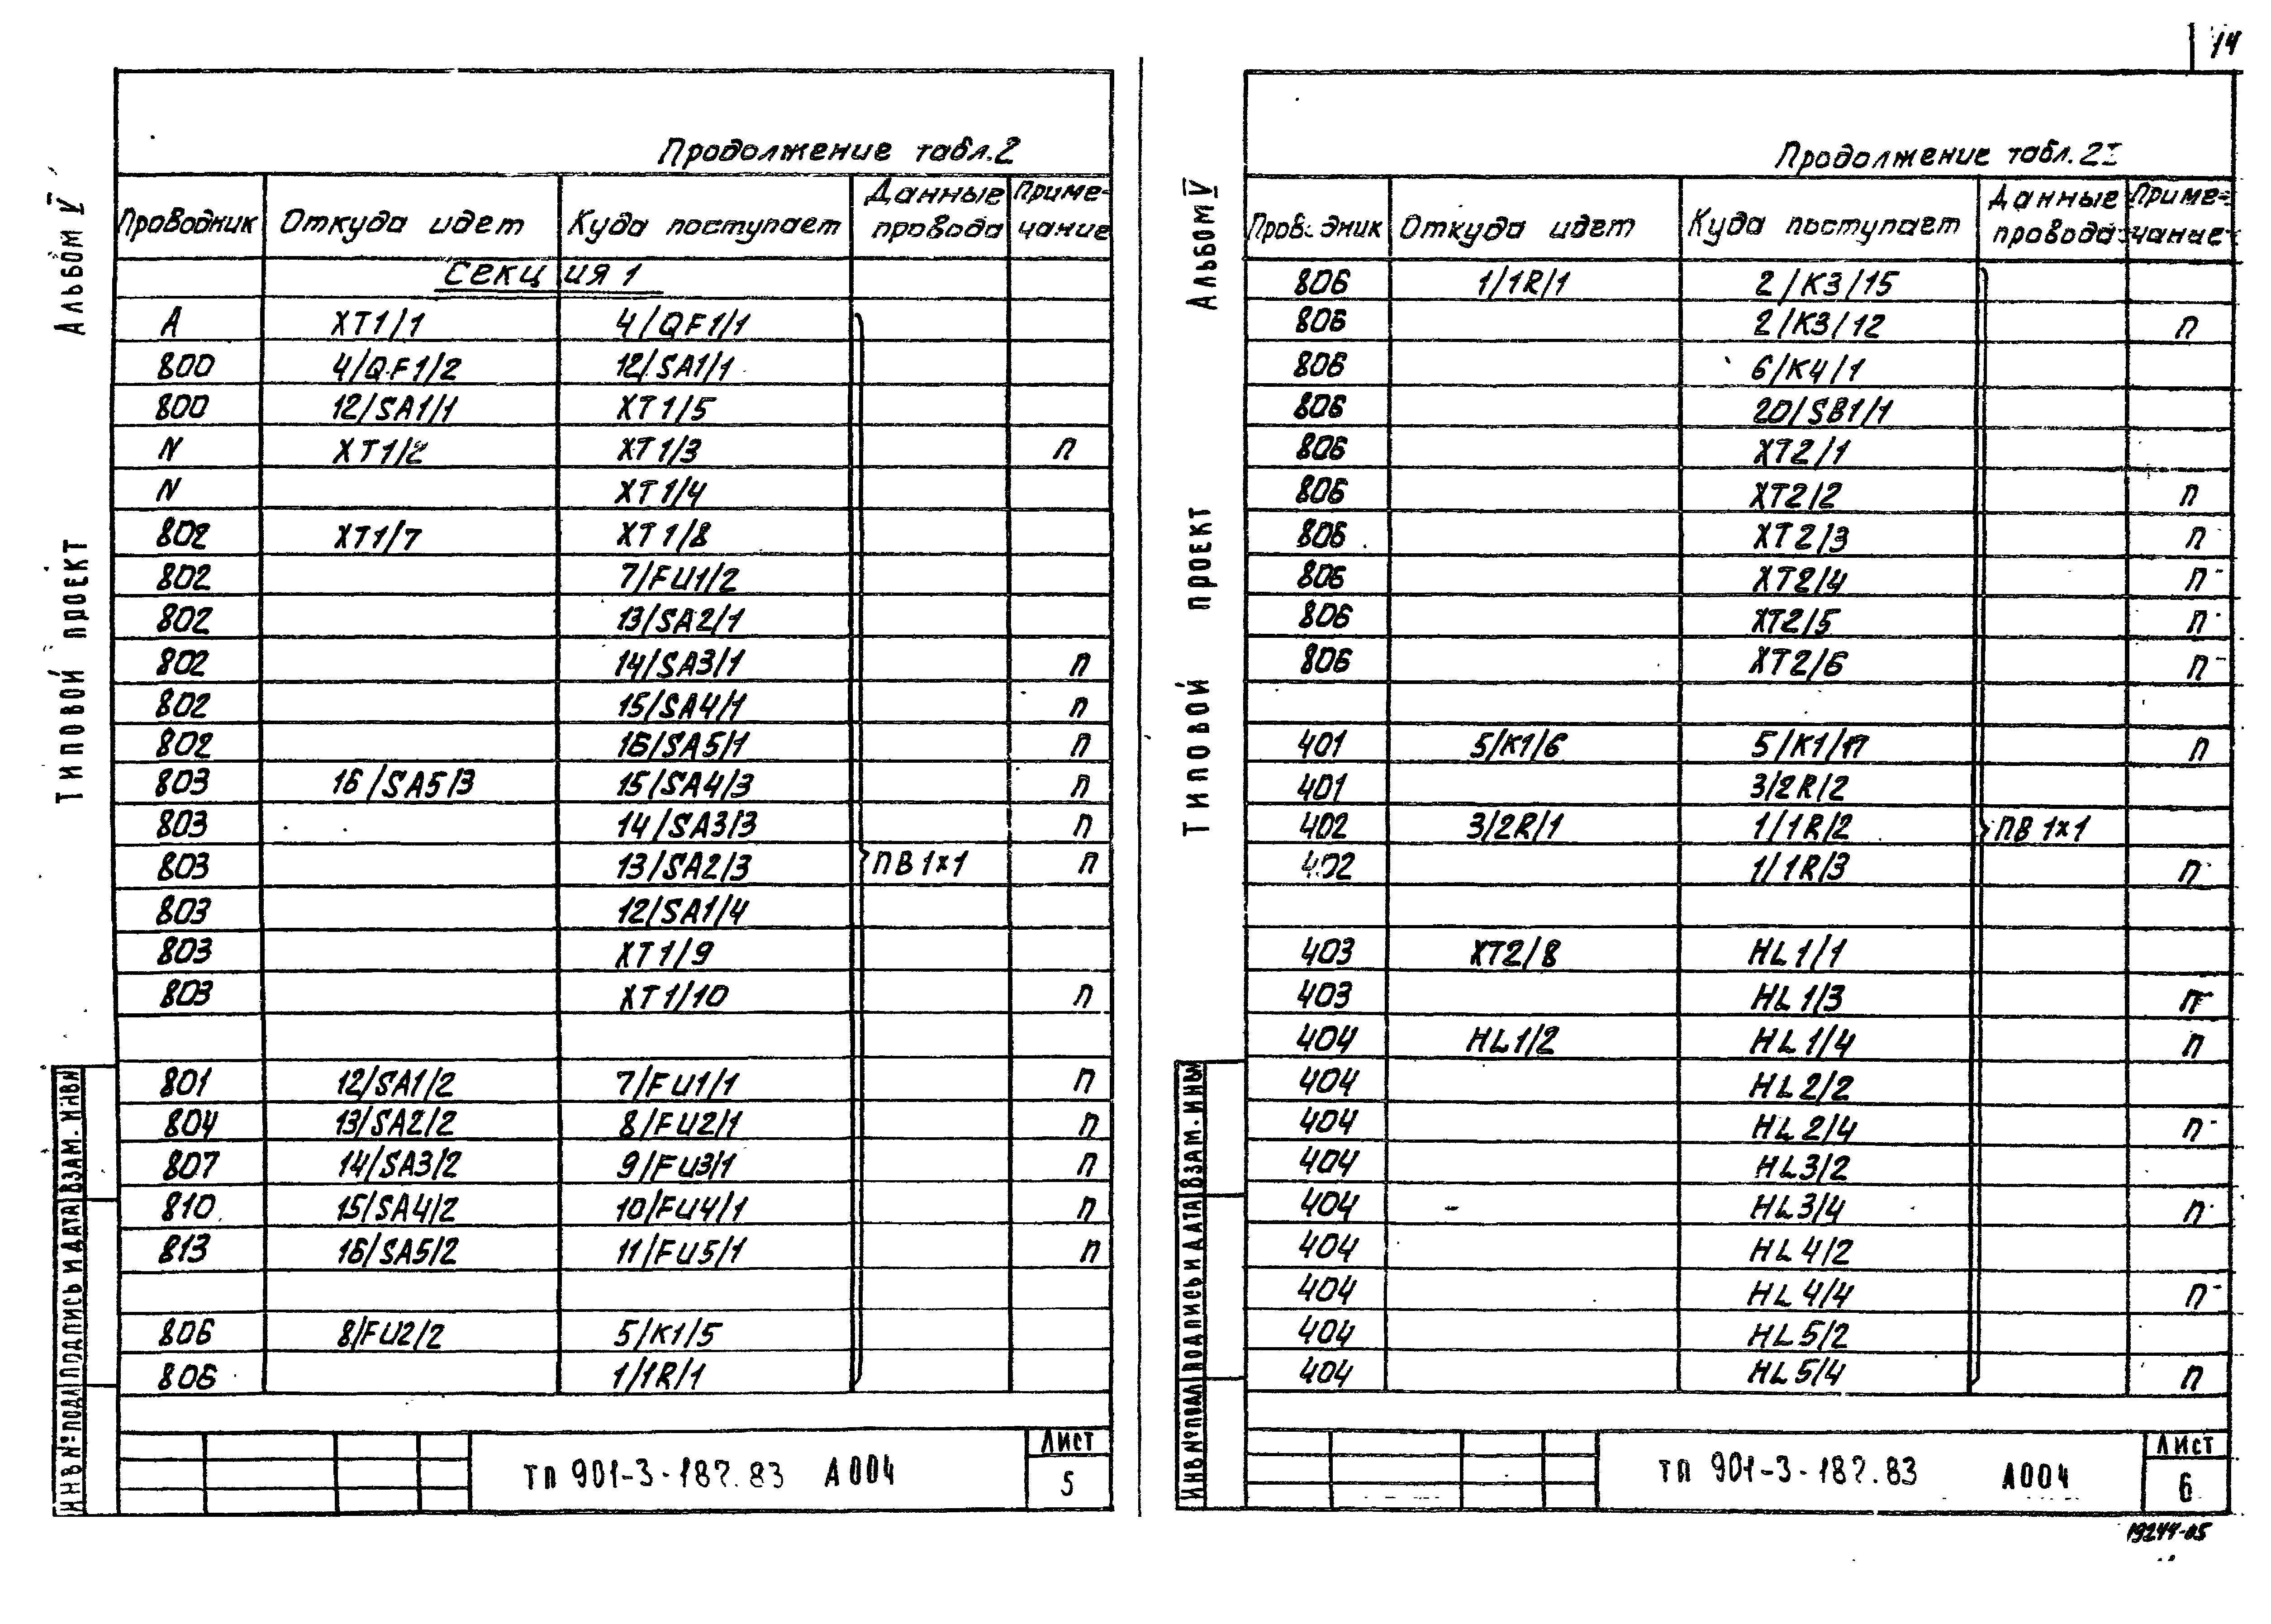 14
Продолжение табл.2
Альбом V
Типовой проект
Проводник Откуда идет Куда поступает Данные провода Примечание
Секция 1
А ХТ1/1 4/QF1/1
800 4/QF1/2 12/SA1/1
800 12/SA1/1 ХТ1/5
N ХТ1/2 ХТ1/3 П
N ХТ1/4
802 ХТ1/7 ХТ1/8
802 7/FU1/2
802 13/SA2/1
802 14/SA3/1 П
802 15/SA4/1 П
802 16/SA5/1 П
803 16/SA5/3 15/SA4/3 П
803 14/SA3/3 П
803 13/SA2/3 ПВ 1×1 П
803 12/SA1/4
803 ХТ1/9
803 ХТ1/10 П
801 12/SA1/2 7/FU1/1 П
804 13/SA2/2 8/FU2/1 П
807 14/SA3/2 9/FU3/1 П
810 15/SA4/2 10/FU4/1 П
813 16/SA5/2 11/FU5/1 П
806 8/FU2/2 5/К1/5
806 1/1R/1
ИНВ№ПОДЛ ПОДПИСЬ И ДАТА ВЗАМ.ИНВ№
ТП 901-3-187.83 А004
Лист
5
Продолжение табл.2
Альбом V
Типовой проект
Проводник Откуда идет Куда поступает Данные провода Примечание
806 1/1R/1 2/К3/15
806 2/К3/12 П
806 6/К4/1
806 20/SB1/1
806 ХТ2/1
806 ХТ2/2 П
806 ХТ2/3 П
806 ХТ2/4 П
806 ХТ2/5 П
806 ХТ2/6 П
401 5/К1/6 5/К1/17 П
401 3/2R/2
402 3/2R/1 1/1R/2 ПВ 1×1
402 1/1R/3 П
403 ХТ2/8 HL1/1
403 HL1/3 П
404 HL1/2 HL1/4 П
404 HL2/2
404 HL2/4 П
404 HL3/2
404 HL3/4 П
404 HL4/2
404 HL4/4 П
404 HL5/2
404 HL5/4 П
ИНВ№ПОДЛ ПОДПИСЬ И ДАТА ВЗАМ.ИНВ№
ТП 901-3-187.83 А004
Лист
6
19244-05